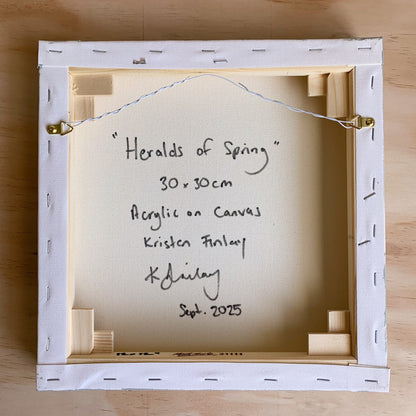 "Heralds of Spring"
30 x 30 cm
Acrylic on Canvas
Kristen Finlay
K Finlay
Sept. 2025